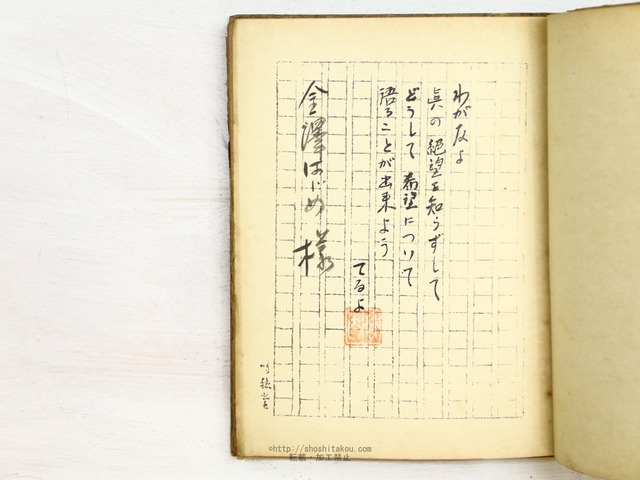 わが友よ
眞の絶望を知らずして
どうして希望について
語ることが出來よう
てるよ
金澤はじめ様
©http://shoshitakou.com
転載・加工禁止